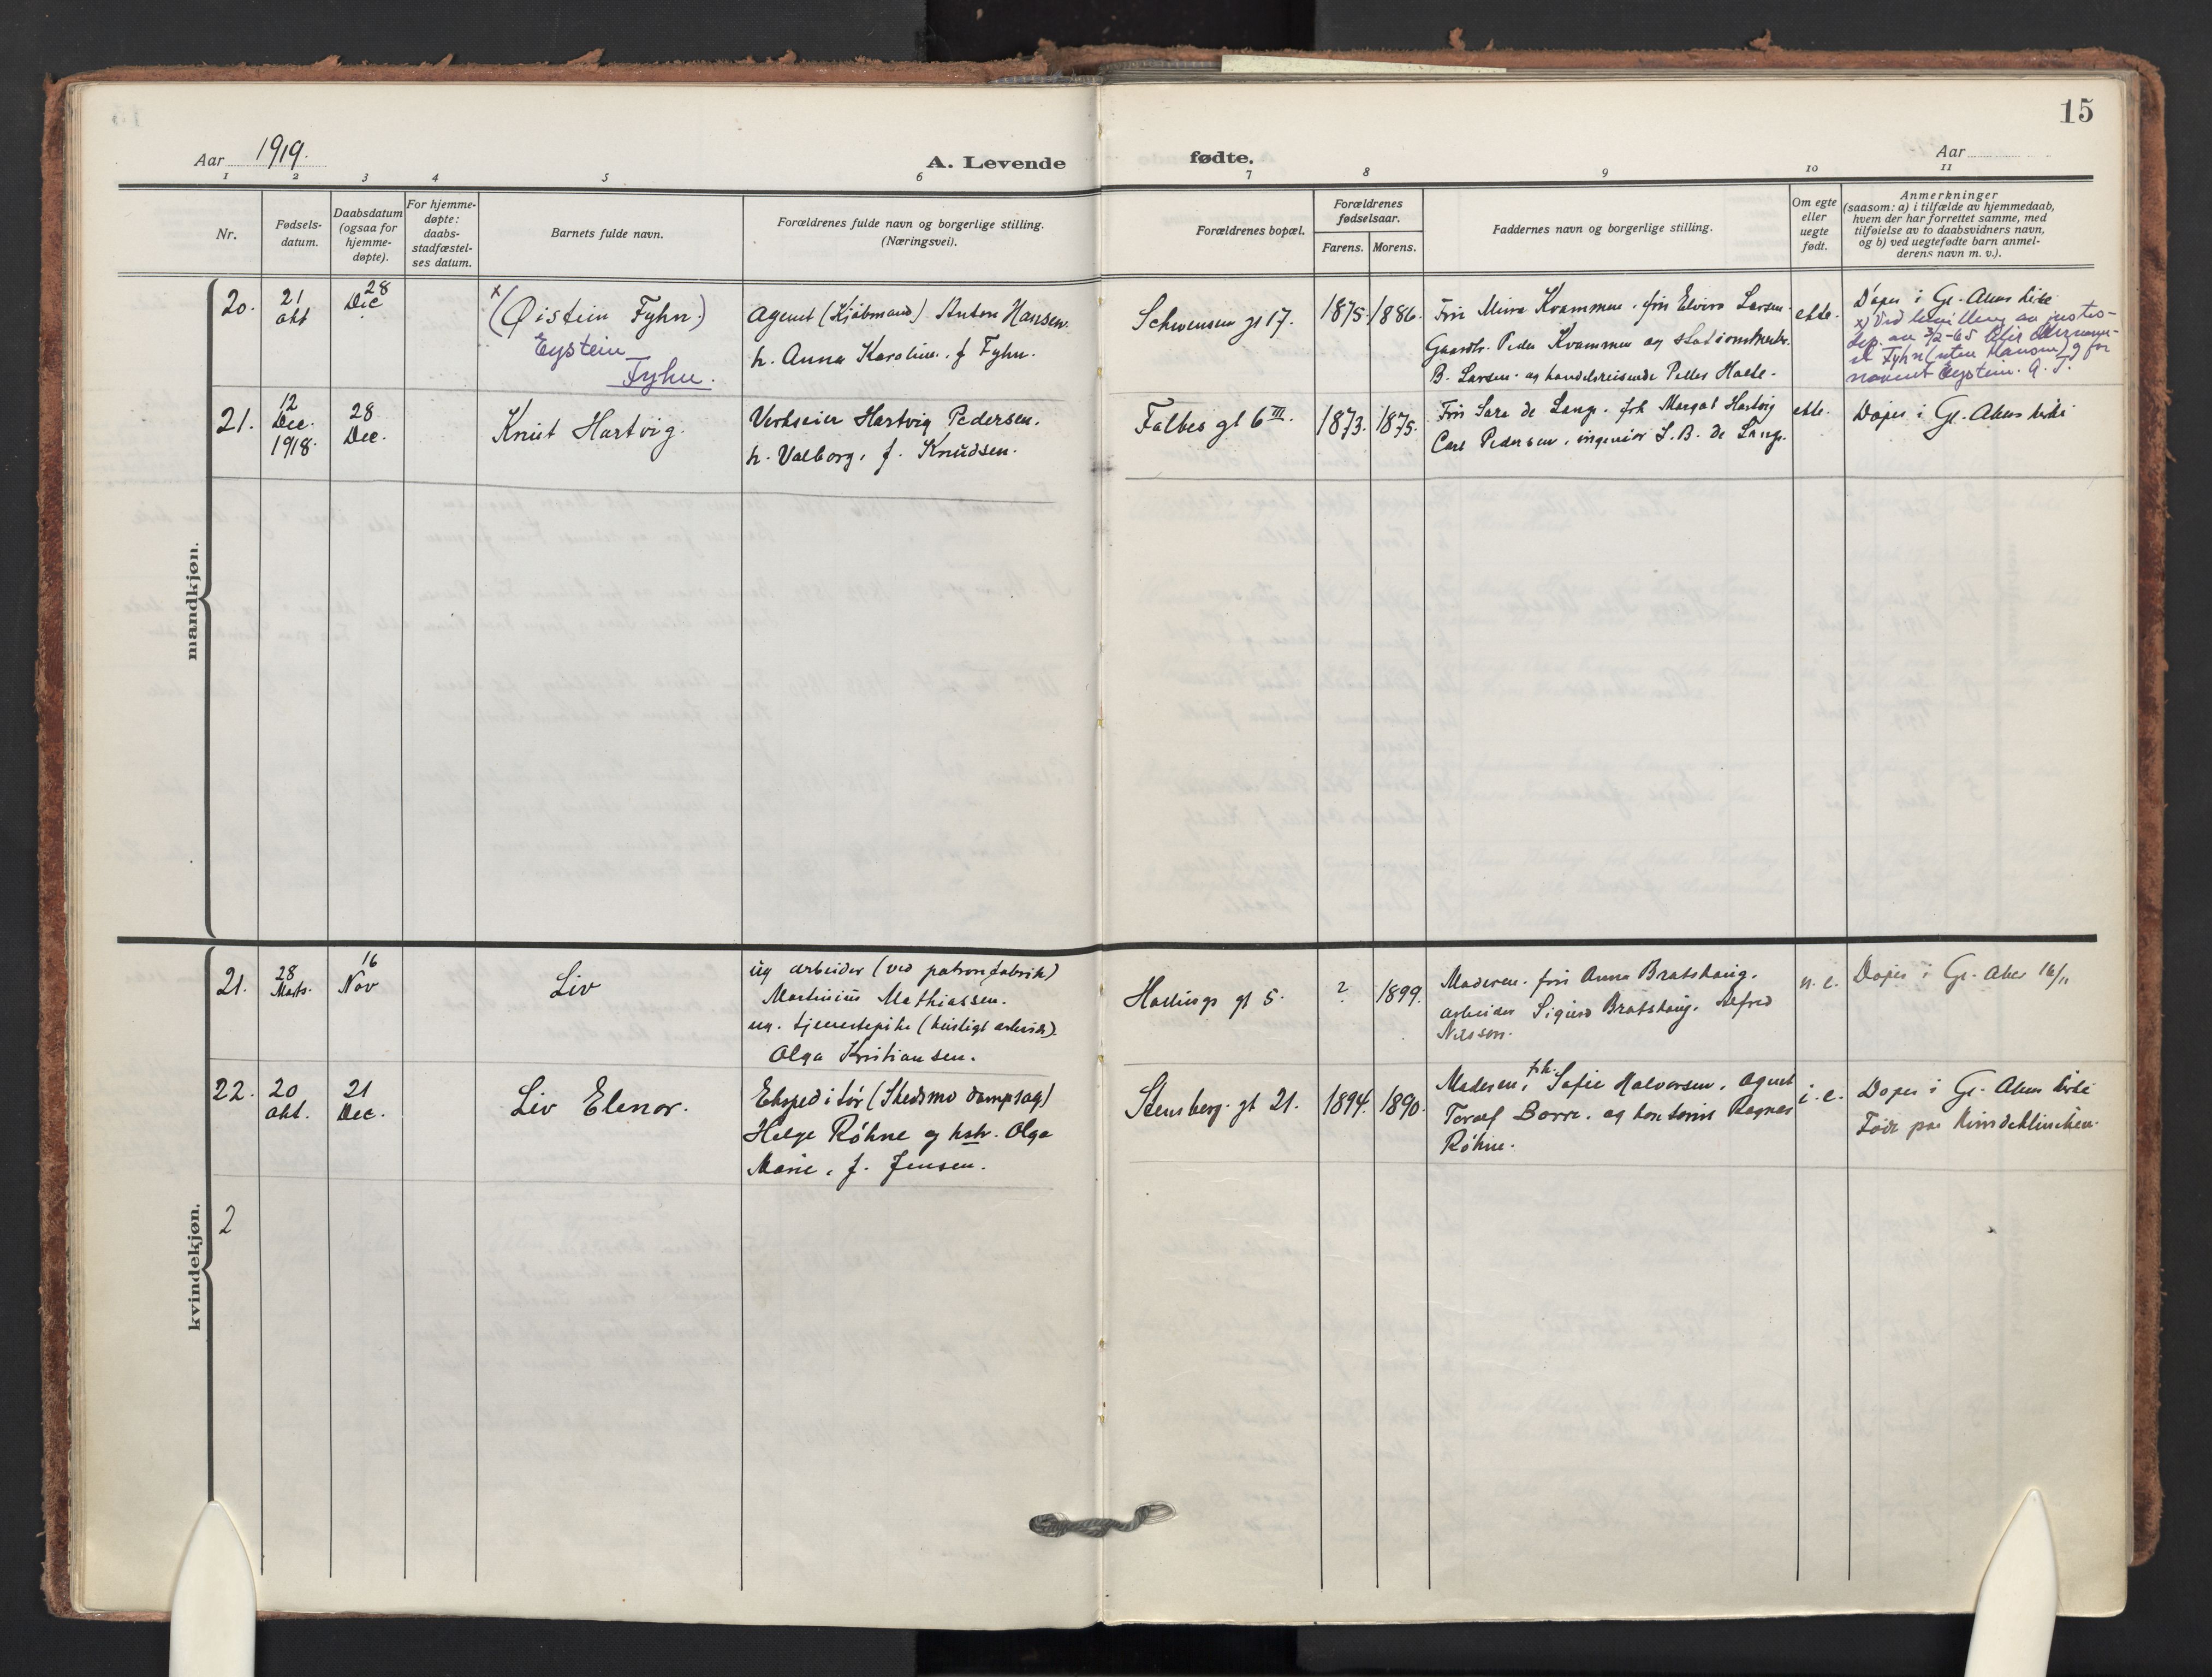 15
Aar 1919.
A. Levende
fødte.
Aar
1 2 3 4 5 6 7 8 9 10 11
Nr.
Fødsels-
datum.
Daabsdatum
(ogsaa for
hjemme-
døpte).
For hjemme-
døpte:
daabs-
stadfæstel-
ses datum.
Barnets fulde navn.
Forældrenes fulde navn og borgerlige stilling.
(Næringsvei).
Forældrenes bopæl.
Forældrenes
fødselsaar.
Farens. Morens.
Faddernes navn og borgerlige stilling.
Om egte
eller
uegte
født.
Anmerkninger
(saasom: a) i tilfælde av hjemmedaab,
hvem der har forrettet samme, med
tilføielse av to daabsvidners navn,
og b) ved uegtefødte barn anmel-
derens navn m. v.).
mandkjøn.
20.
21
Okt
28
Dec
x
(Øistein Fyhn.)
Eystein
Fyhn.
Agent (Kjøbmand) Anton Hansen.
h. Anna Karoline. f Fyhn.
Schwensen gt 17.
1875. 1886.
Fru Mina Kvammen. fru Elvira Larsen.
Gaardbr. Peder Kvammen og
B. Larsen. og handelsreisende Petter Holte.
ekte.
Døpt i Gl. Akers kirke
x) Ved bevilling av justis-
dep. av 3/2-65 blir
Fyhn (uten Hansen) og for
navnet Eystein. G. T.
21.
12
Dec.
1918.
28
Dec.
Knut Hartvig.
Verkseier Hartvig Pedersen.
h. Valborg, f. Knudsen.
Falbes gt 6 III.
1873. 1875.
Fru Sara de Lange. frk Margot Hartvig
Carl Pedersen, ingeniør L. B. de Lange.
ekte.
Døpt i Gl. Akers kirke
kvindekjøn.
21.
28
Marts.
16
Nov
Liv
ug arbeider (ved patronfabrik)
Martinius Mathiassen.
ug. tjenestepike (husligt arbeide).
Olga Kristiansen.
gt 5.
? 1899.
Moderen. fru Anna Bratshaug.
arbeider Sigurd Bratshaug. Alfred
Nilsson.
u. e.
Døpt i Gl. Aker 16/11
22.
20
Okt.
21
Dec.
Liv Elenor.
Ekspeditør (Skedsmo dampsag)
Helge Røhne og hstr. Olga
Marie, f. Jensen.
Stensberg. gt 21.
1894. 1890.
Moderen, frk. Sofie Halvorsen, agent
Toralf Borre. og kontorist Ragnar
Røhne.
i. e.
Døpt i Gl. Akers kirke
Født paa Kvindeklinikken.
2